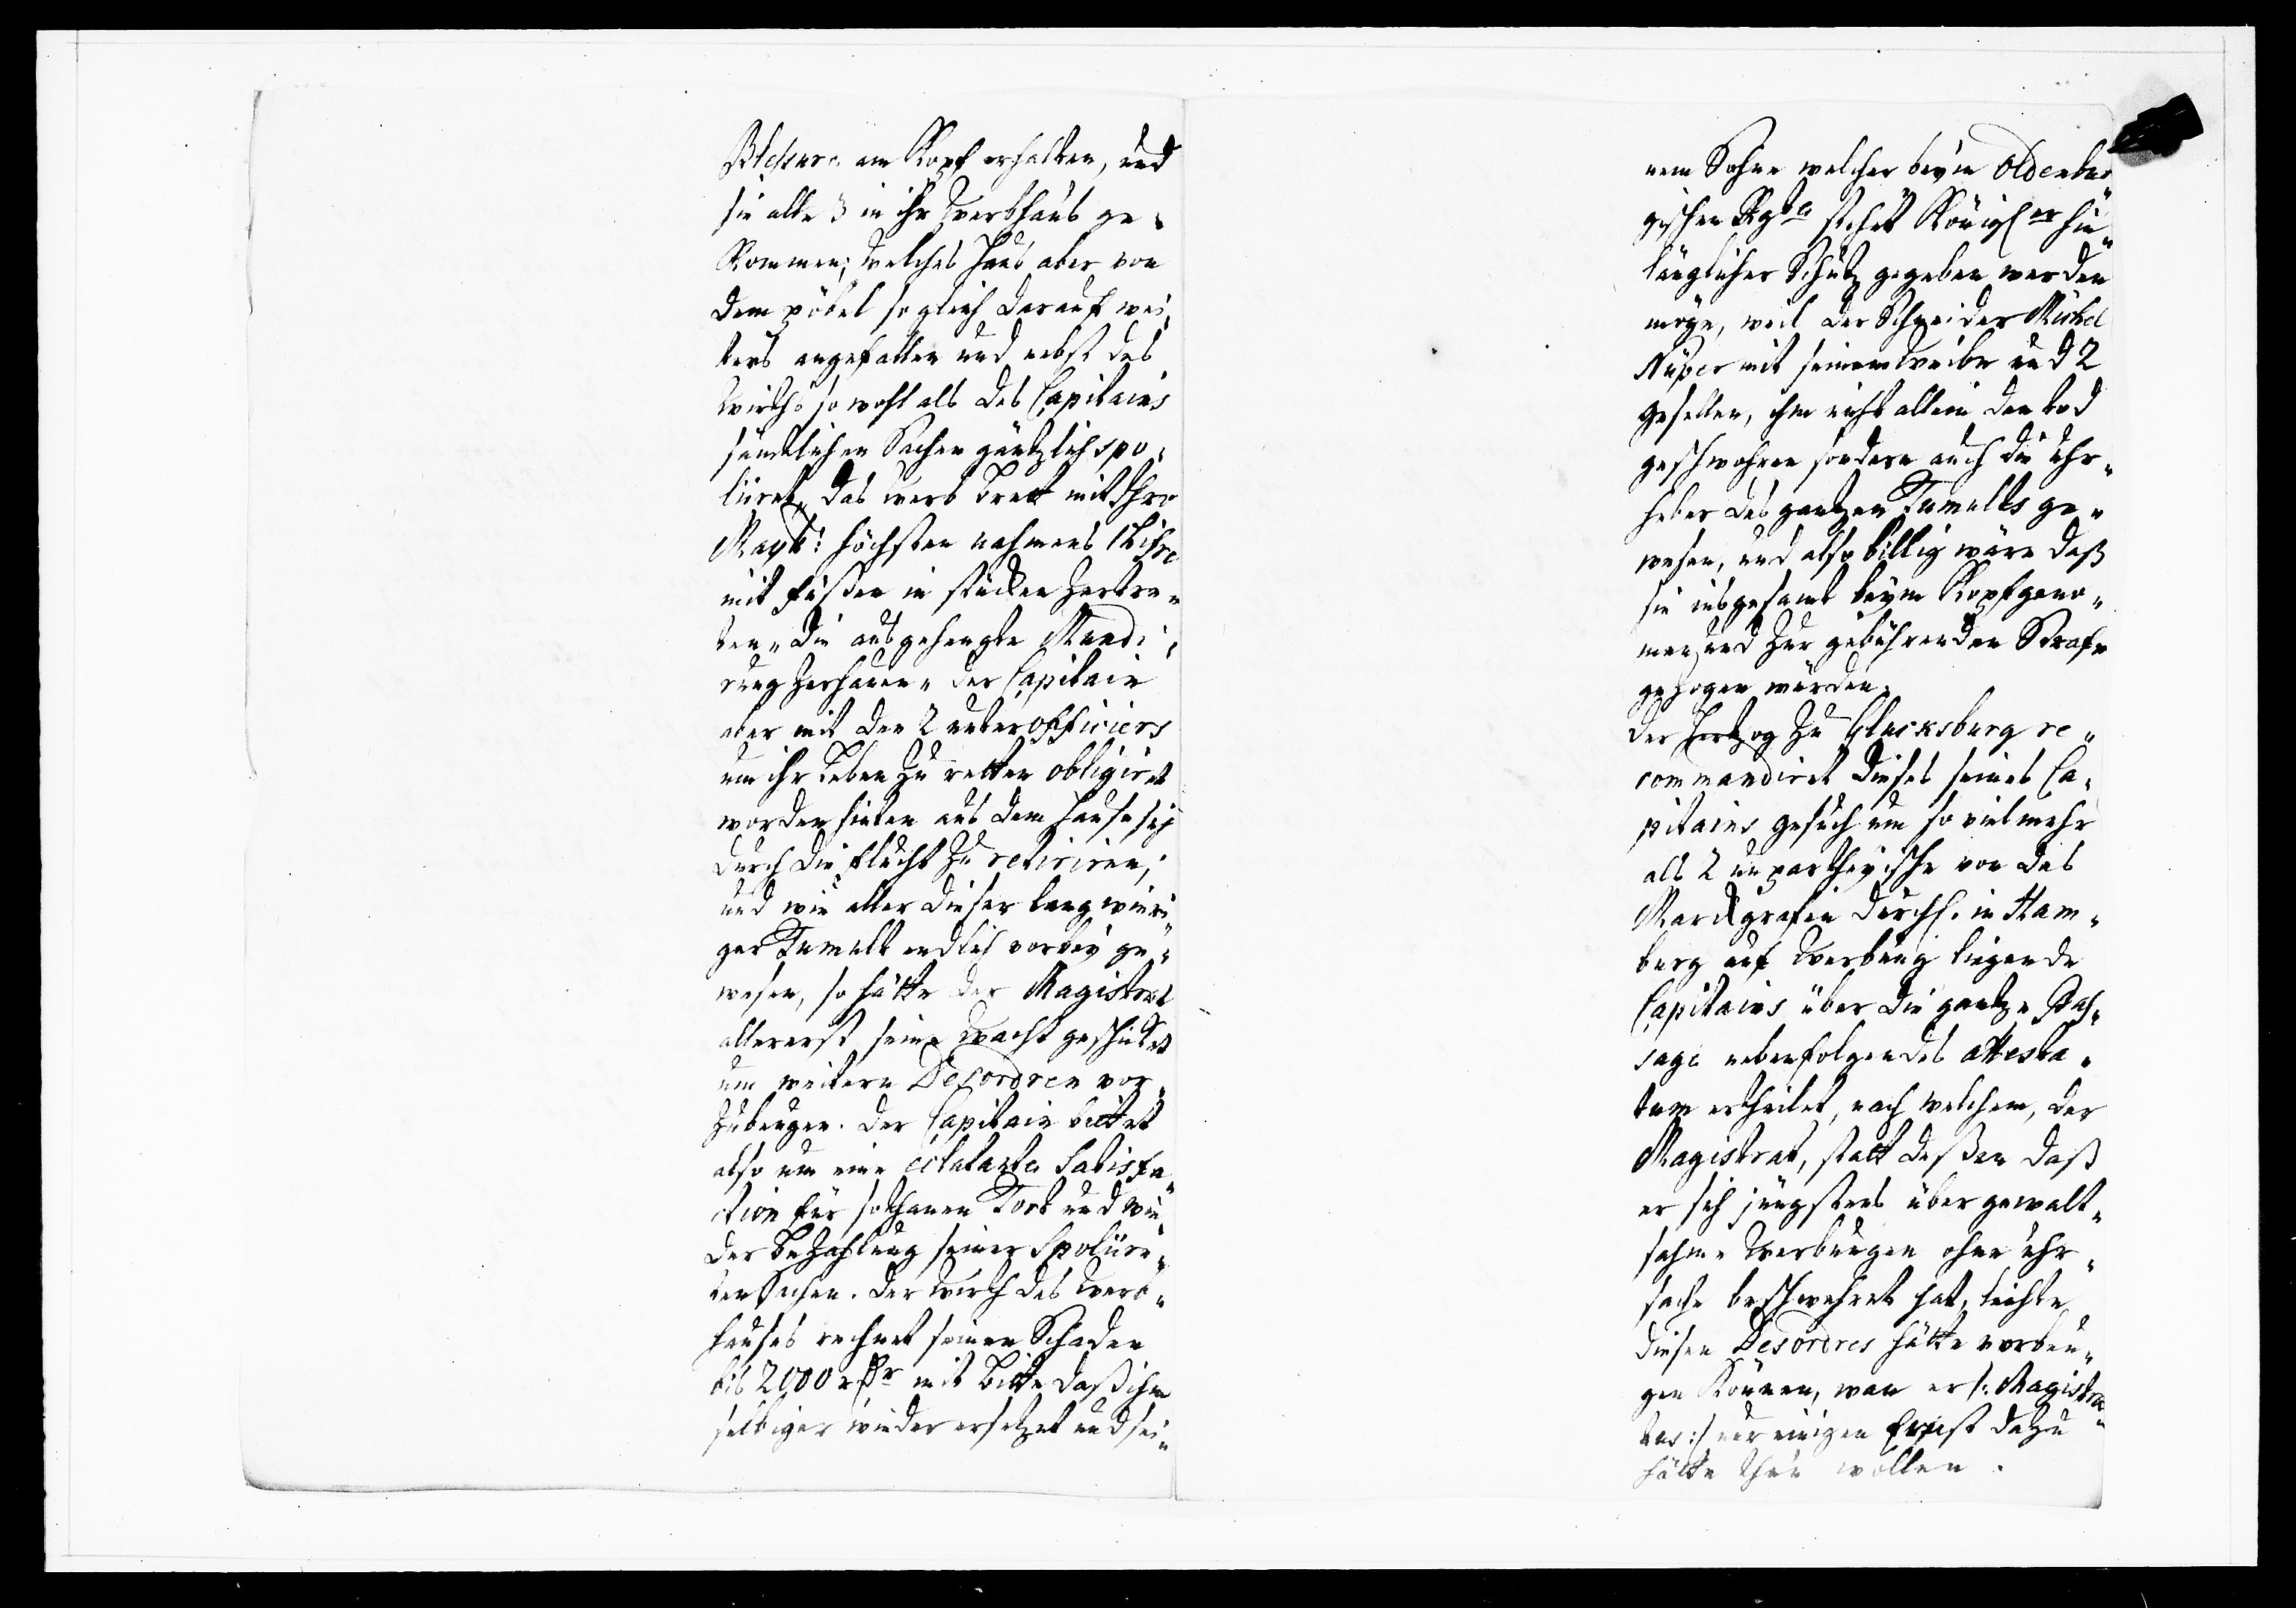 Blessure am Kopf erhalten, und
sie alle 3 in ihr Werbhaus ge„
kommen; welches Haus aber von
dem pöbel so gleich darauf wei„
ters angefallen und nebst des
Wirths so wohl als des Capitains
sämtlichen Sachen gäntzlich spo„
liiret, das Werb brett mit Ihro
Mayt: höchsten nahmens Chifre
mit füßen in stücken zertre„
ten„ die ausgehengte Mundi„
rung zerhauen„ der Capitain
aber mit den 2 unterofficiers
um ihr Leben zu retten obligiret
worden hinten aus dem Hause sich
durch die flucht zu retiriren;
und wie aller dieser langwieri„
ger Tumult endlich vorbey ge„
wesen, so hätte der Magistrat
allererst seine Wacht geschicket
um weitern Desordren vor„
zubeugen. Der Capitain bittet
also um eine eclatante Satisfa„
ction für sothanen Tort und wie„
der bezahlung seiner Spoliire„
ten Sachen. Der Wirth des Werb„
hauses rechnet seinen Schaden
bis 2000 rthr mit bitte daß ihm
selbiger wieder ersetzet und sei„
nem Sohne welcher beym Oldenbur„
gischen Rgte stehet Königl er hin„
länglicher Schutz gegeben werden
möge, weil der Schneider Michel
Nüßer mit seinem Weibe und 2
gesellen, ihm nicht allein den tod
geschwohren sondern auch die Uhr„
heber des gantzen Tumults ge„
wesen, und also billig wäre daß
sie insgesamt beym Kopf geno„
men und zur gebührenden Strafe
gezogen würden.
Der Hertzog zu Glucksburg re„
commandiret dieses seines Ca„
pitains gesuch um so viel mehr
als 2 unpartheyische von des
Marckgrafen Durchl. in Ham„
burg auf Werbung liegende
Capitains über die gantze Pas„
sage nebenfolgendes attesta„
tum ertheilet, nach welchem, der
Magistrat, statt deßen daß
er sich jüngstens über gewalt„
sahme Werbungen ohne Uhr„
sache beschwehret hat, leichte
diesen Desordres hätte vorbeu„
gen können, wan er /: Magistra„
tus :/ nur einigen Ernst dazu
hätte thun wollen.